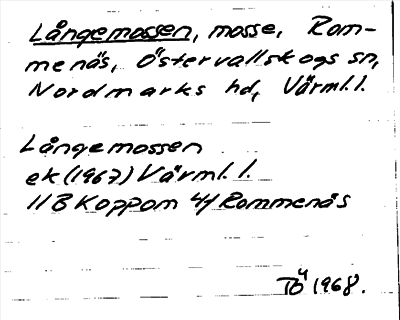 Långemossen, mosse, Rom-
menäs, Östervallskogs sn,
Nordmarks hd, Värml. l.
Långemossen
ek (1967) Värml. l.
11B Koppom 4j Rommenäs
TÖ 1968.